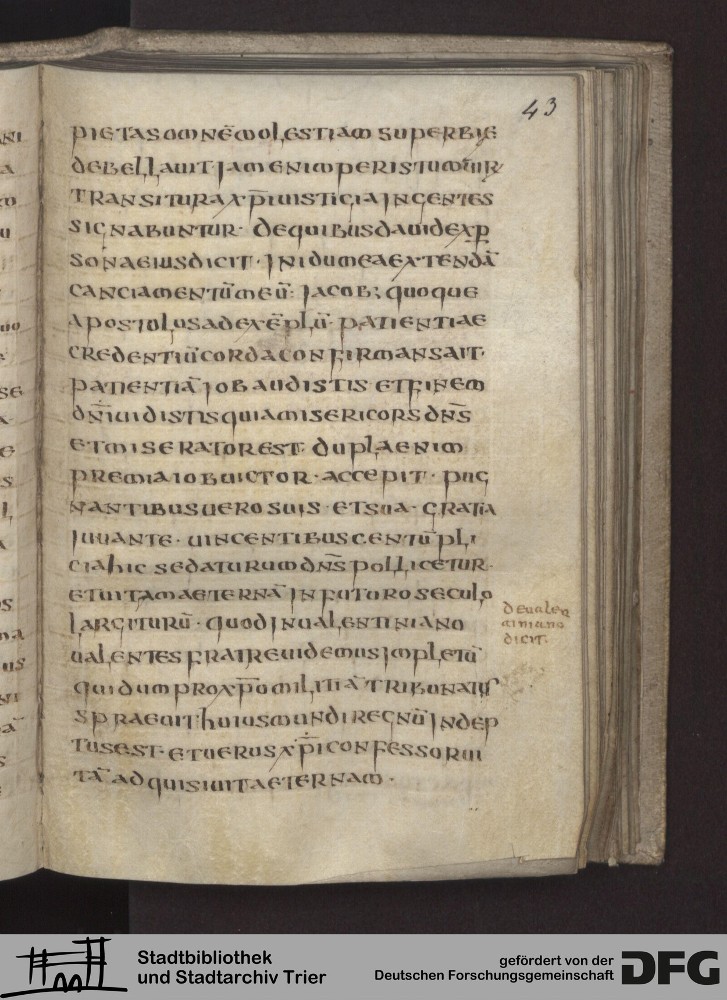 43
pietas omnē molestiam superbiae
debellauit Jam enim per istum uir
transitura xp̄i uistigia Ingentes
signabuntur· de quibus dauid ex p̱
sona eius dicit· In idumea extendā
canciamentū meū: Jacob; quoque
apostolus ad exēplū· patientiae
credentiū corda confirmans ait·
patientiā iob audistis et finem
dn̄i uidistis quia misericors dn̄s
et miserator est· dupla enim
premia iob uictor· accepit· pug
nantibus uero suis· et sua· gratia
Iuuante· uincentibus centū pli
cia hic se daturum dn̄s pollicetur·
et uitam aeternā In futuro seculo
largiturū· quod In ualentiniano
ualentes fratre uidemus Impletū
qui dum pro xp̄o militiā tribunatus
spraeuit huius mundi regnū Indep
tus est· et uerus xp̄i confessor ui
tā adquisiuit aeternam·
de ualen
tiniano
dicit·
Stadtbibliothek
und Stadtarchiv Trier
gefördert von der
Deutschen Forschungsgemeinschaft
DFG